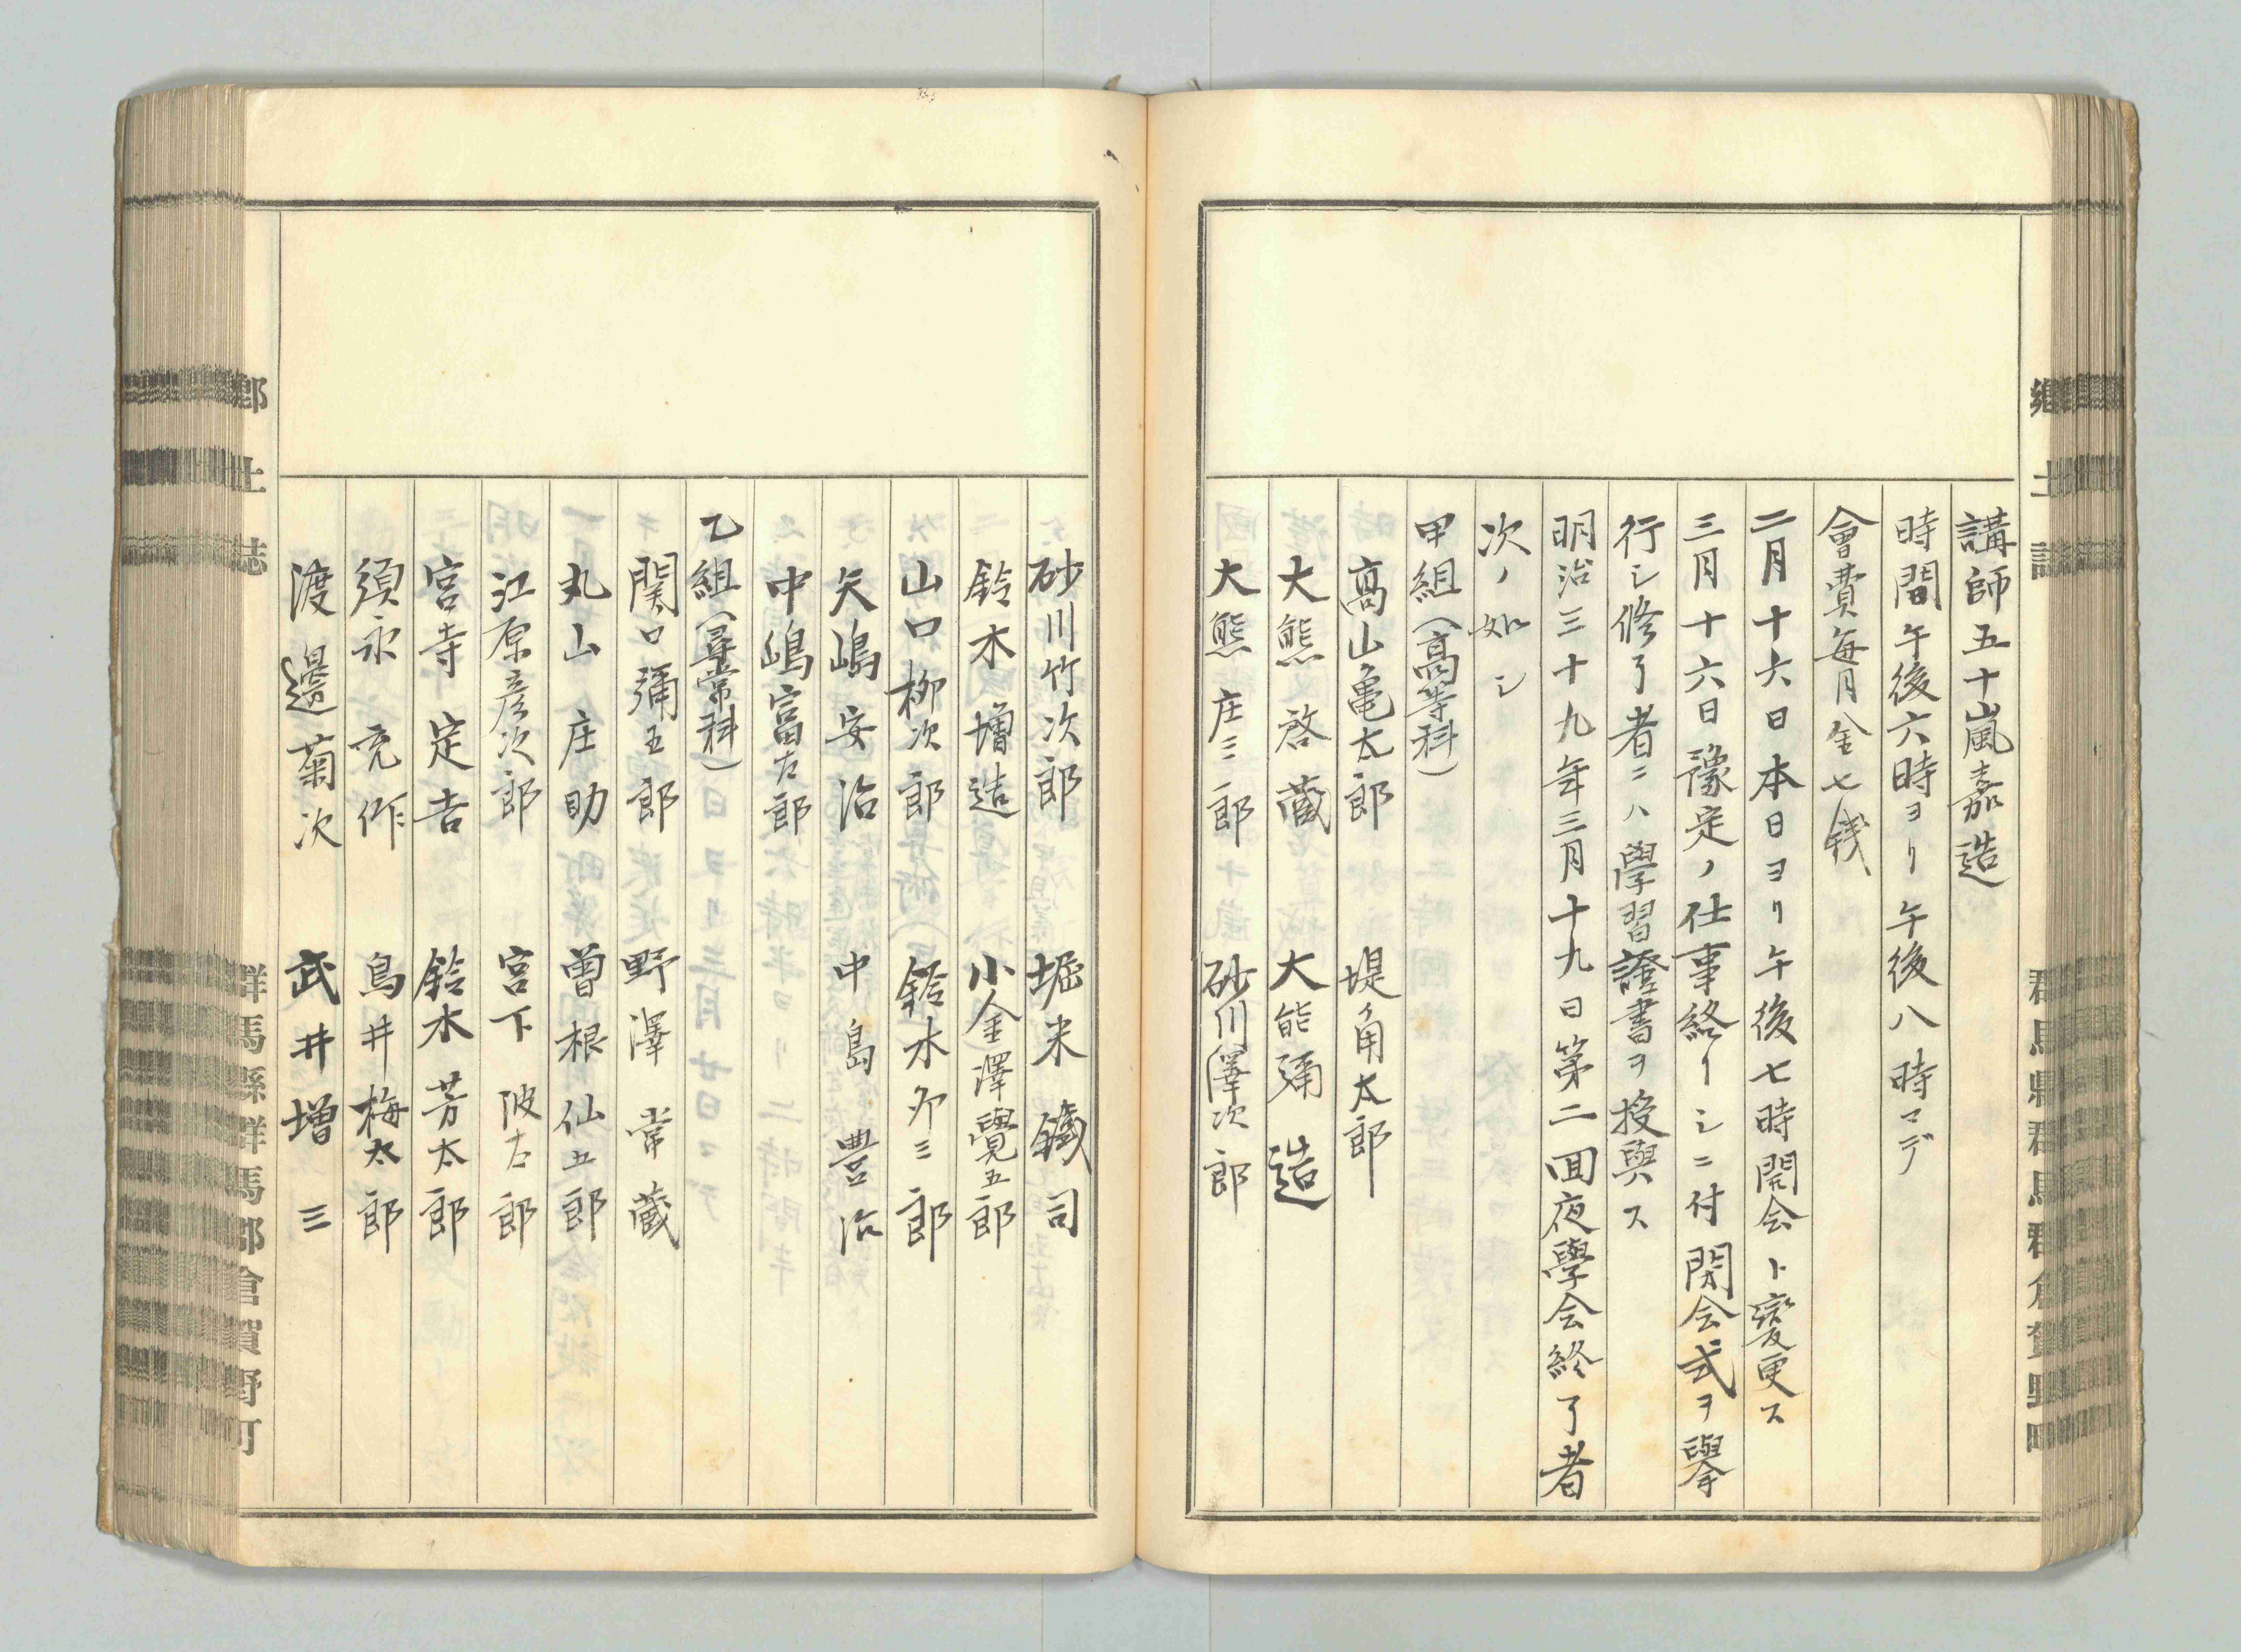 鄕土誌
群馬縣群馬郡倉賀野町
講師五十嵐嘉造
時間午後六時ヨリ午後八時マデ
會費毎月金七錢
二月十六日本日ヨリ午後七時開会ト變更ス
三月十六日豫定ノ仕事終リシニ付閉会式ヲ擧
行シ修了者ニハ學習證書ヲ授與ス
明治三十九年三月十九日第二囬夜學会終了者
次ノ如シ
甲組(高等科)
高山亀太郎 堤角太郎
大熊啓蔵 大熊彌造
大熊庄三郎 砂川澤次郎
砂川竹次郎 堀米鐵司
鈴木増造 小金澤覺五郎
山口柳次郎 鈴木夘三郎
矢嶋安治 中島豊治
中嶋富太郎
乙組(尋常科)
関口彌五郎 野澤常蔵
丸山庄助 曽根仙五郎
江原彦次郎 宮下 太郎
宮寺定吉 鈴木芳太郎
須永 作 鳥井梅太郎
渡邊菊次 武井増三
鄕土誌
群馬縣群馬郡倉賀野町